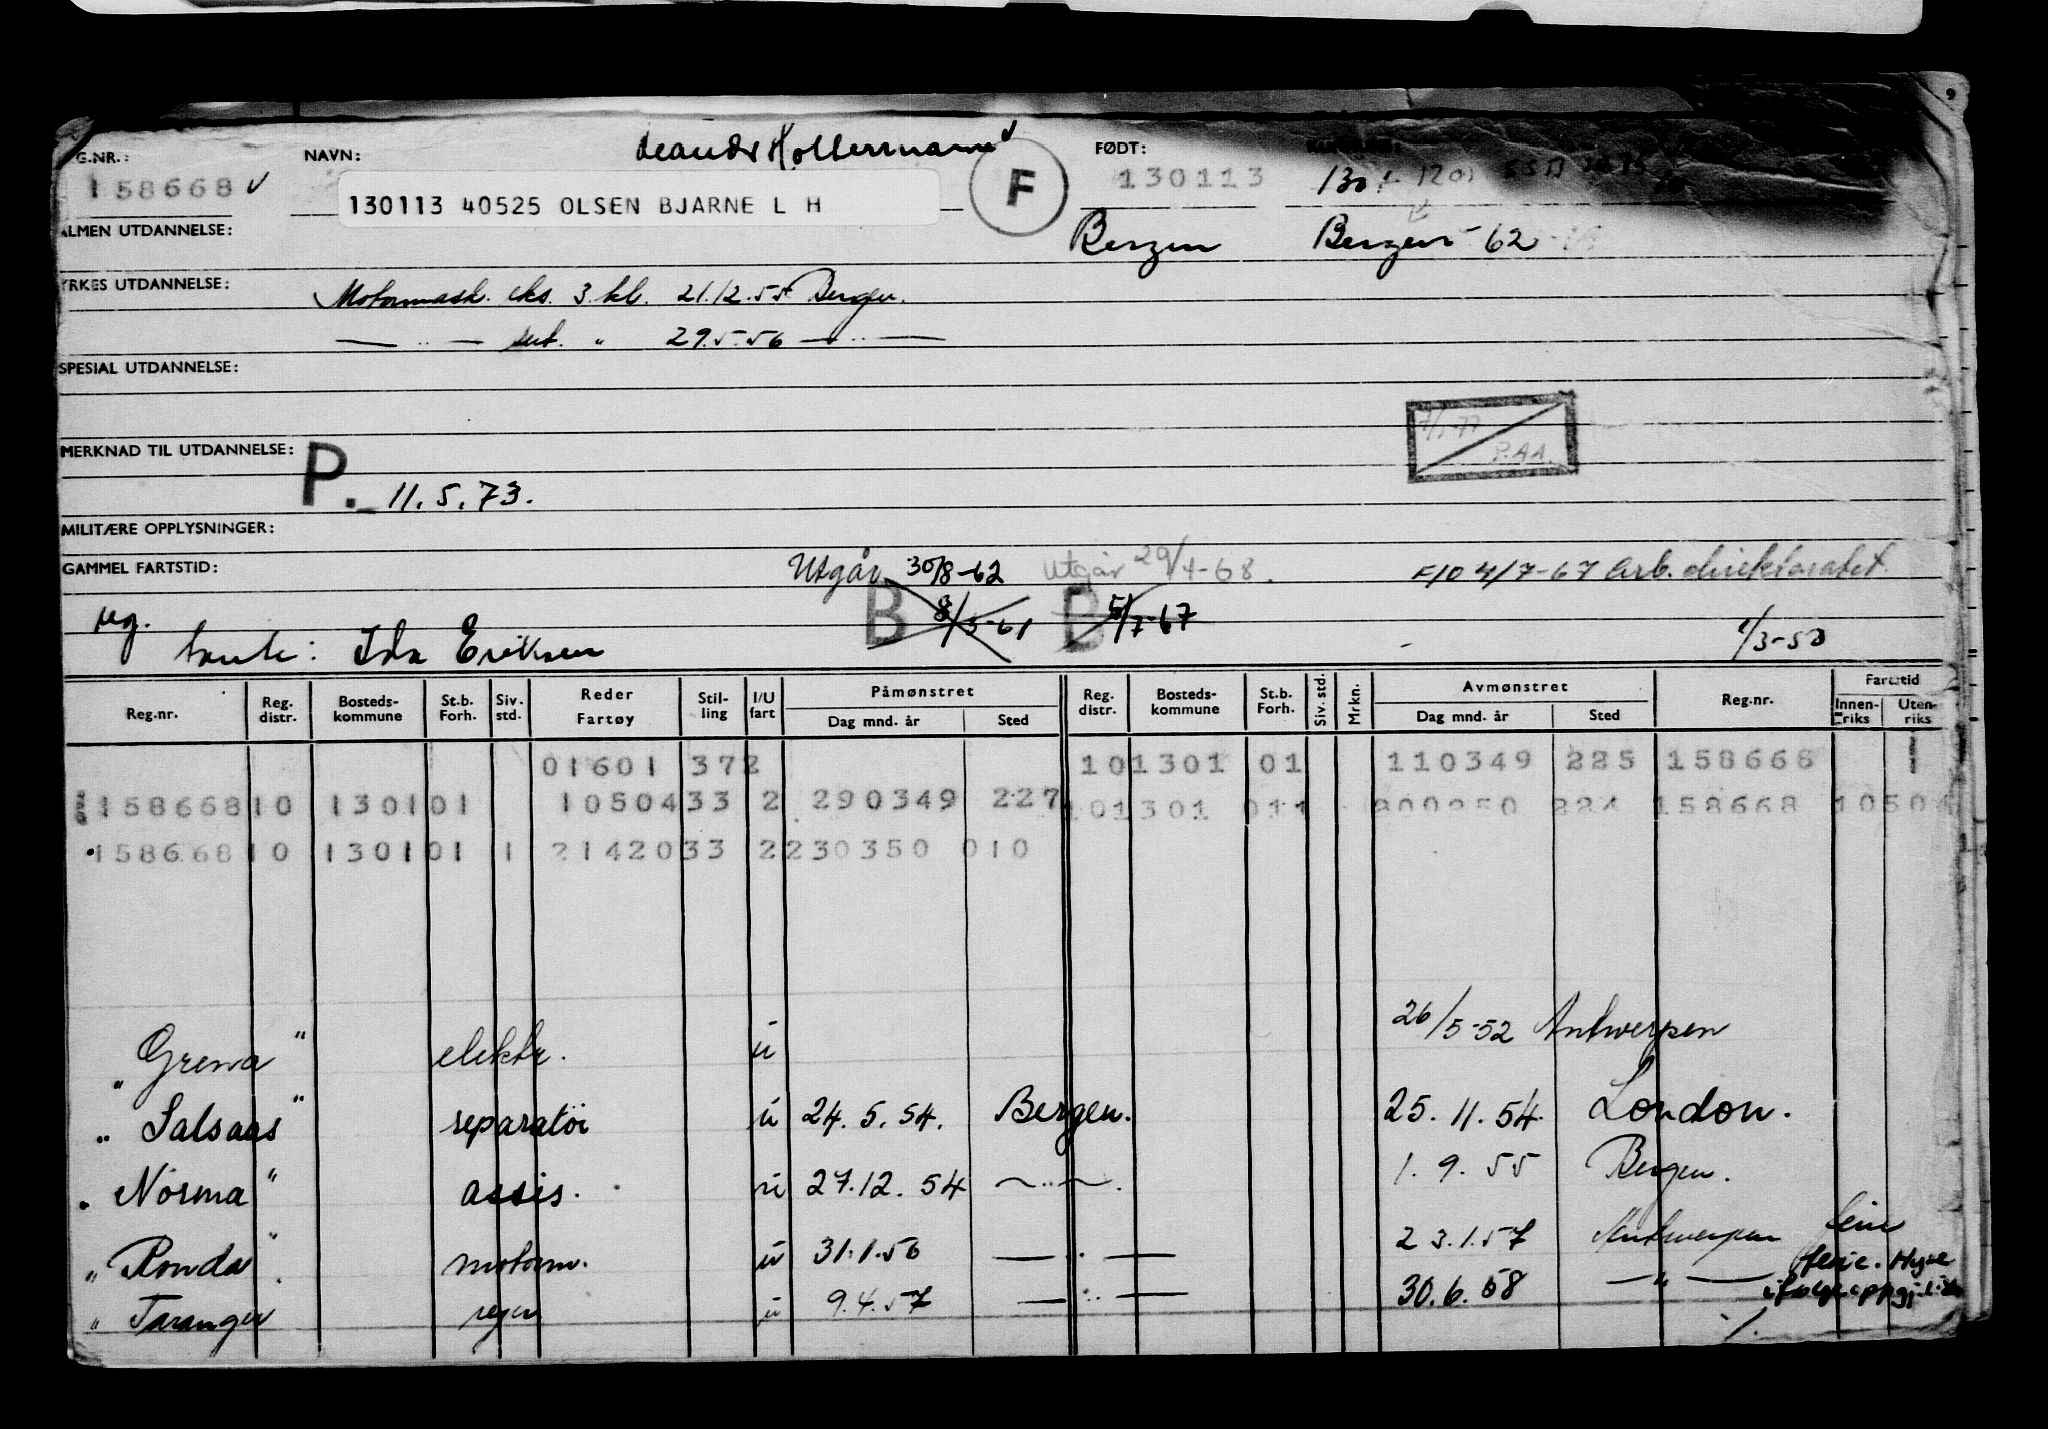 Hollermann
REG.NR.: NAVN: FØDT:
158668 F 130113
130113 40525 OLSEN BJARNE L H
Bergen Bergen -62
ALMEN UTDANNELSE:
YRKES UTDANNELSE: Motormask. eks. 3. kl. 21.12.55 Bergen.
— " — sert. " 29.5.56 — " —
SPESIAL UTDANNELSE:
7/1-77
P.AA.
MERKNAD TIL UTDANNELSE:
P. 11.5.73.
MILITÆRE OPPLYSNINGER:
GAMMEL FARTSTID: Utgår 30/8-62 Utgår 29/4-68. F10 4/7-67 Arb. direktoratet
reg. B 8/5-61 B 5/7-67
tante: Ida Eriksen 1/3-50
Reg.nr. Reg. distr. Bosteds- kommune St.b. Forh. Siv. std. Reder Fartøy Stil- ling I/U fart Påmønstret Dag mnd. år Sted Reg. distr. Bosteds- kommune St.b. Forh. Siv. std. Mrkn. Avmønstret Dag mnd. år Sted Reg.nr. Fartstid Innen- riks Uten- riks
01601 372 101301 01 110349 225 158668
158668 10 1301 01 10504 33 2 290349 227 101301 011 224 158668 10504
158668 10 1301 01 1 21420 33 2 230350 010
"Grena" elektr. u 26/5-52 Antwerpen
"Salsaas" reparatör u 24.5.54. Bergen. 25.11.54. London.
"Norma" assis. u 27.12.54 — " —. 1.9.55 Bergen.
"Ronda". motorm. u 31.1.56 — " — 23.1.57 Antwerpen
"Taranger u 9.4.57 — " — 30.6.58 — " — ferie. Hyre